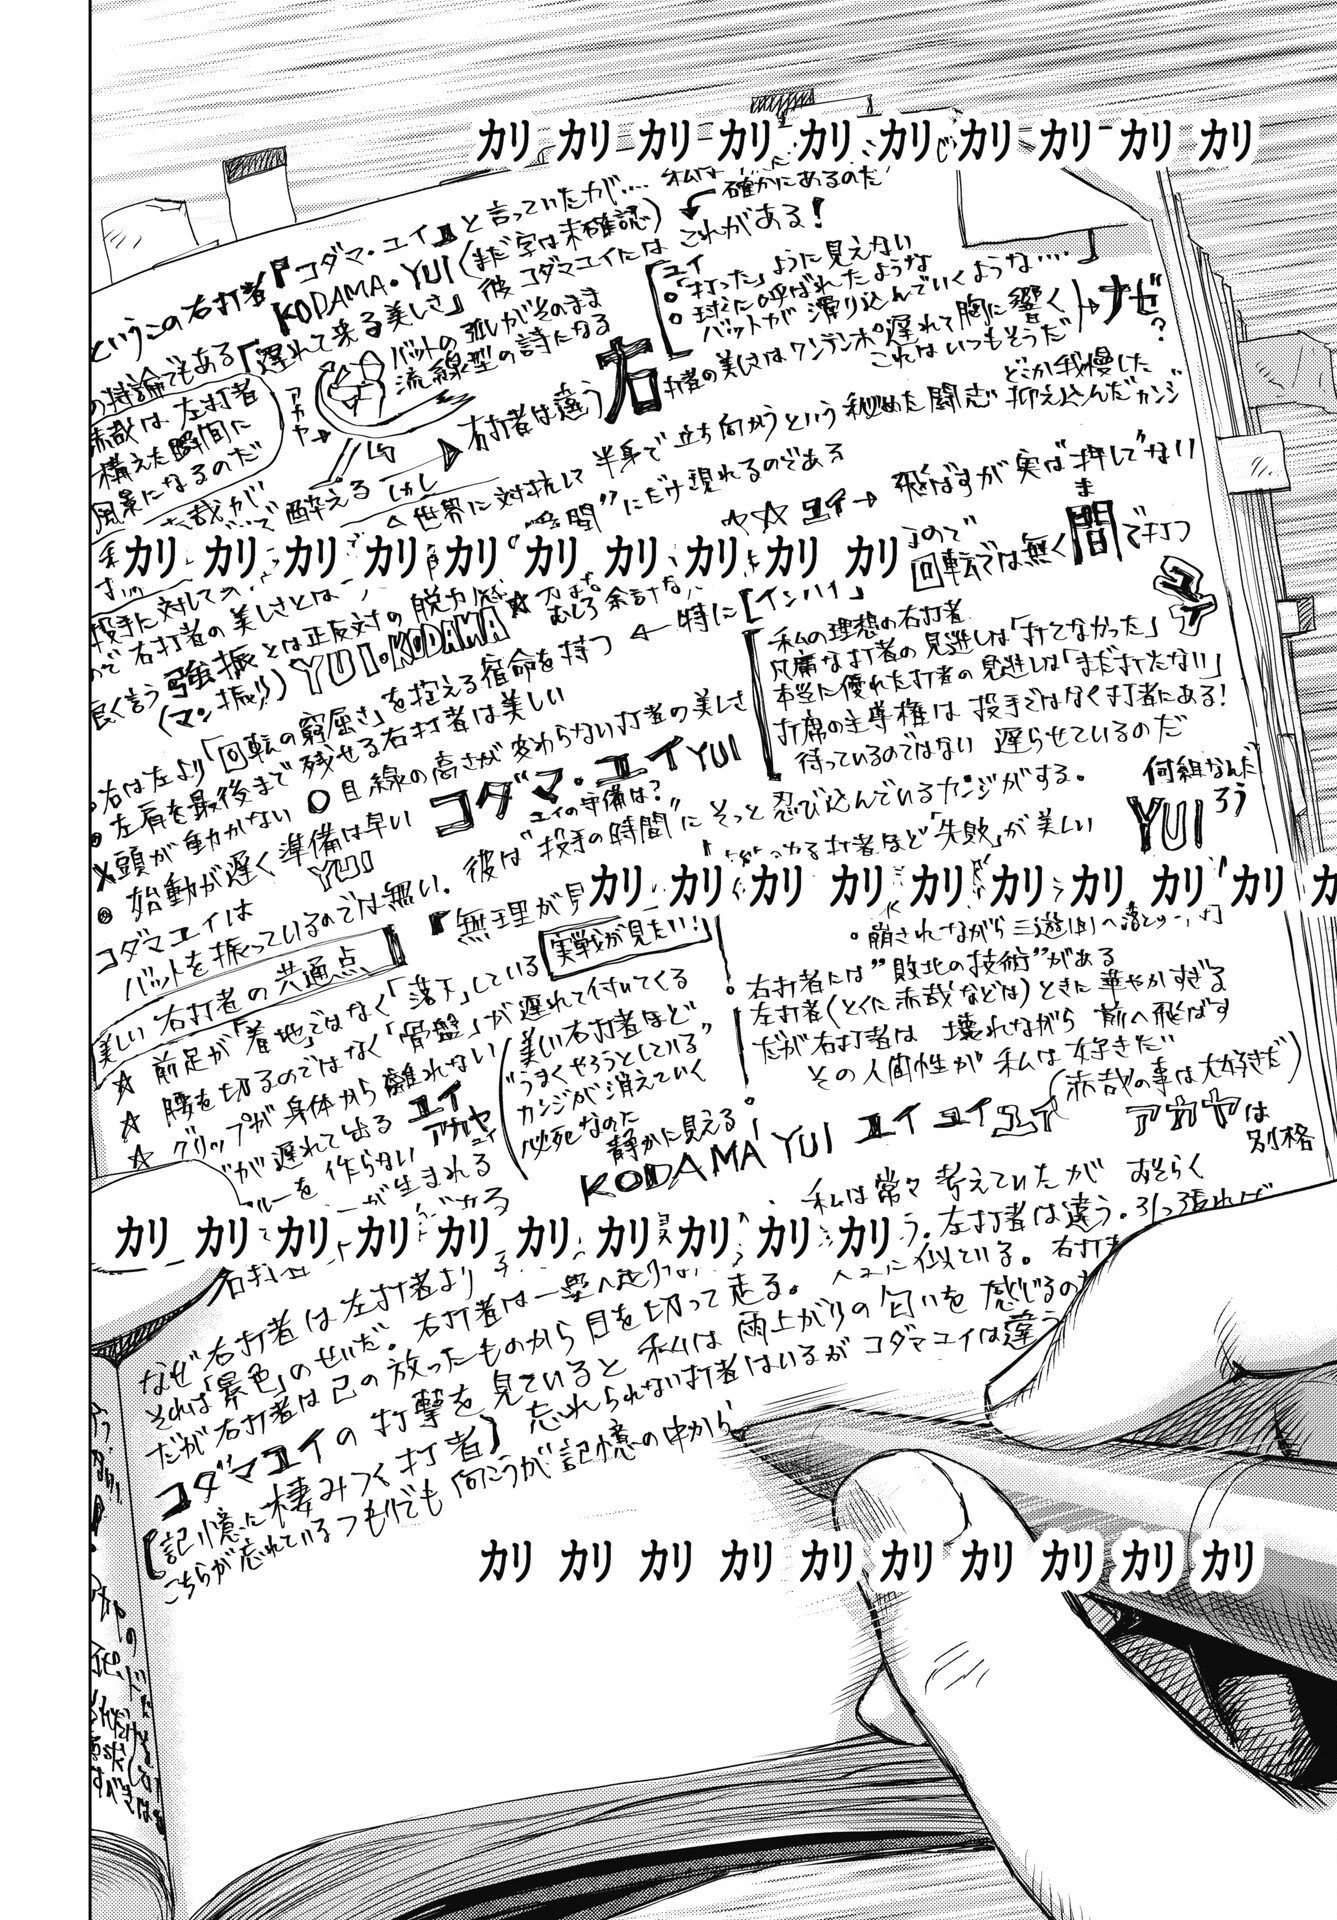 カリ カリ カリ カリ カリ カリ カリ カリ カリ カリ
確かにあるのだ
というこの右打者『コダマ・ユイ』と言っていたが…. 私は
KODAMA・YUI(まだ字は未確認)
これがある!
の持論でもある「遅れて来る美しさ」彼コダマユイには
ユイ
打った」ように見えない
球に呼ばれたような
バットが滑り込んでいくような….」
バットの弧がそのまま
流線型の詩になる
アカヤ
赤哉は、左打者
構えた瞬間に
風景になるのだ
右打者は違う
右打者の美しさはワンテンポ遅れて胸に響く
ナゼ?
これはいつもそうだ
どこか我慢した
抑え込んだカンジ
赤哉が
酔える しかし
世界に対抗して半身で立ち向かうという秘めた闘志
間”にだけ現れるのである
ユイ→飛ばすが実は押してない
ま
ので
回転では無く間で打つ
ユイ
カリ カリ カリ カリ カリ カリ カリ カリ カリ カリ
投手に対して
右打者の美しさとは
ので
正反対の脱力感
むしろ余計な
良く言う強振とは
(マン振!!)
YUI・KODAMA
特に[インハイ]
私の理想の右打者
凡庸な打者の見逃しは「打てなかった」
本当に優れた打者の見逃しは「まだ打たない」
打席の主導権は投手ではなく打者にある!
待っているのではない 遅らせているのだ
右は左より「回転の窮屈さ」を抱える宿命を持つ
左肩を最後まで残せる右打者は美しい
頭が動かない 目線の高さが変わらない打者の美しさ
始動が遅く準備は早い
YUI
コダマ・ユイYUI
ユイの守備は?
何組なんだろう
YUI
コダマユイは
バットを振っているのでは無い。彼は“投手の時間”にそっと忍び込んでいるカンジがする。
打者ほど「失敗」が美しい
カリ カリ カリ カリ カリ カリ カリ カリ カリ カリ
「無理が見
実戦が見たい!
崩されながら三遊間へ
美しい右打者の共通点
☆ 前足が「着地」ではなく「落下」している
☆ 腰を切るのではなく「骨盤」が遅れて付いてくる
☆ グリップが身体から離れない
が遅れて出る
ユイ
アカヤ
を作らない
ユイ
が生まれる
美しい右打者ほど
“うまくやろうとしている”
カンジが消えていく
必死なのに
静かに見える
右打者には“敗北の技術”がある
左打者(とくに赤哉などは)ときに華やかすぎる
だが右打者は 壊れながら 前へ飛ばす
その人間性が 私は好きだ
(赤哉の事は大好きだ)
KODAMA YUI ユイ ユイ ユイ
アカヤは
別格
私は常々考えていたが おそらく
左打者は違う。引っ張れば
カリ カリ カリ カリ カリ カリ カリ カリ カリ カリ
に似ている。右打者
なぜ右打者は左打者より
それは「景色」のせいだ。右打者は一塁へ
だが右打者は己の放ったものから目を切って走る。
コダマユイの打撃を見ていると 私は雨上がりの匂いを感じるの
[記憶に棲みつく打者] 忘れられない打者はいるが コダマユイは違う
こちらが忘れているつもりでも 向こうが記憶の中から
カリ カリ カリ カリ カリ カリ カリ カリ カリ カリ